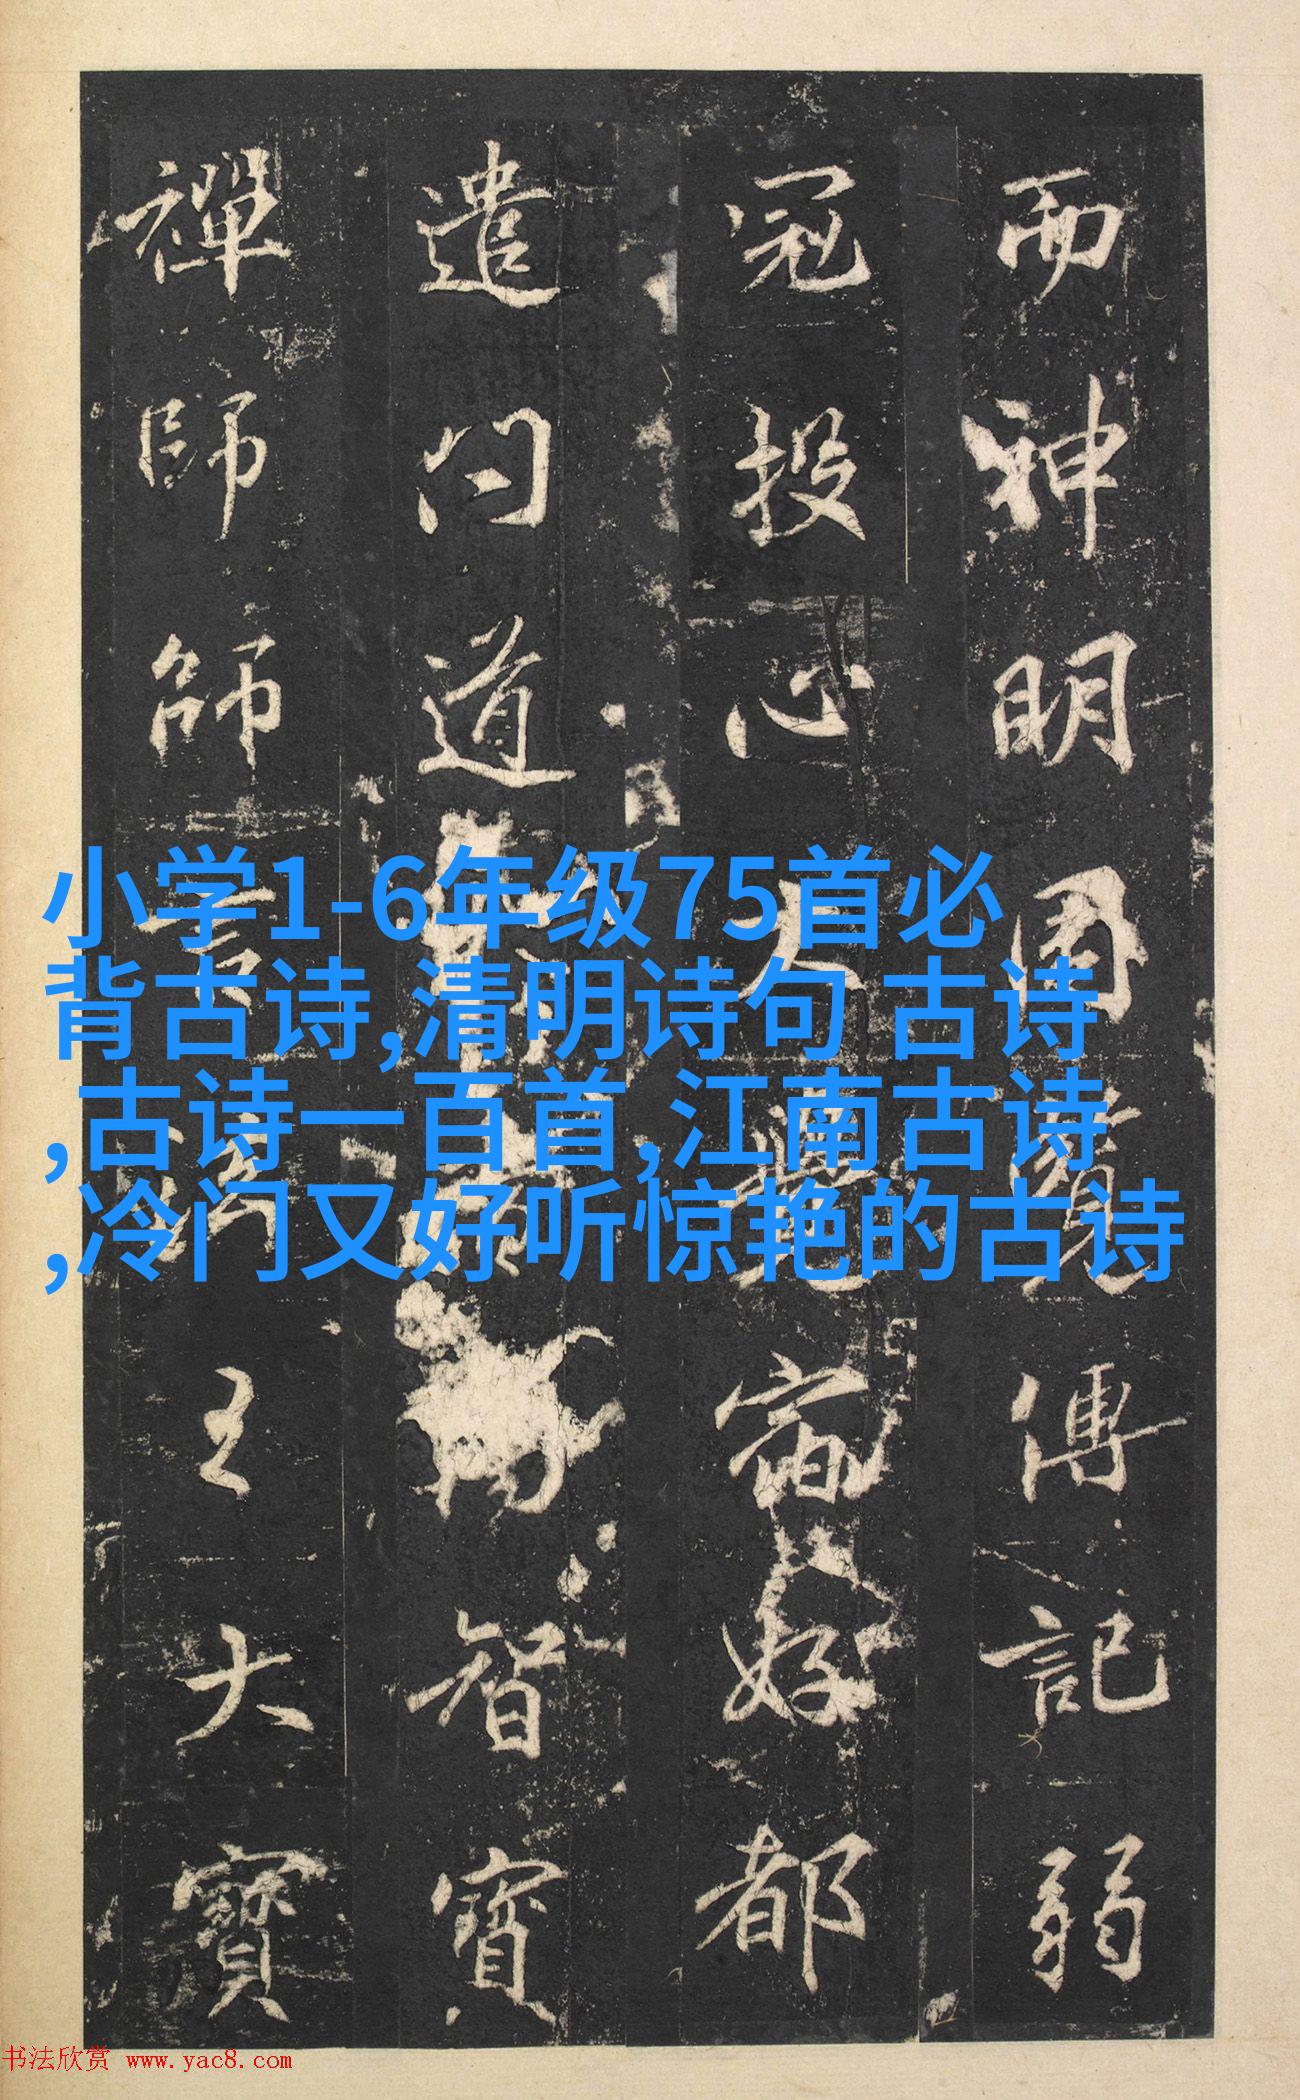 而神明周覽傳記弱
冠投心人覺宿好都
遣問道
智寶
禪師師言
王大寶
小学1-6年级75首必
背古诗,清明诗句 古诗
,古诗一百首,江南古诗
,冷门又好听惊艳的古诗
书法欣赏 www.yac8.com